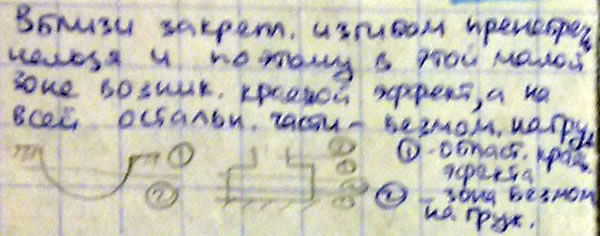 Вблизи закрепл. изгибом пренебречь
нельзя и поэтому в этой малой
зоне возник. краевой эффект, а на
всей остальн. части - безмом. нагруж
① ① - област. краев.
эффекта
② ② - зона безмом
нагруж.